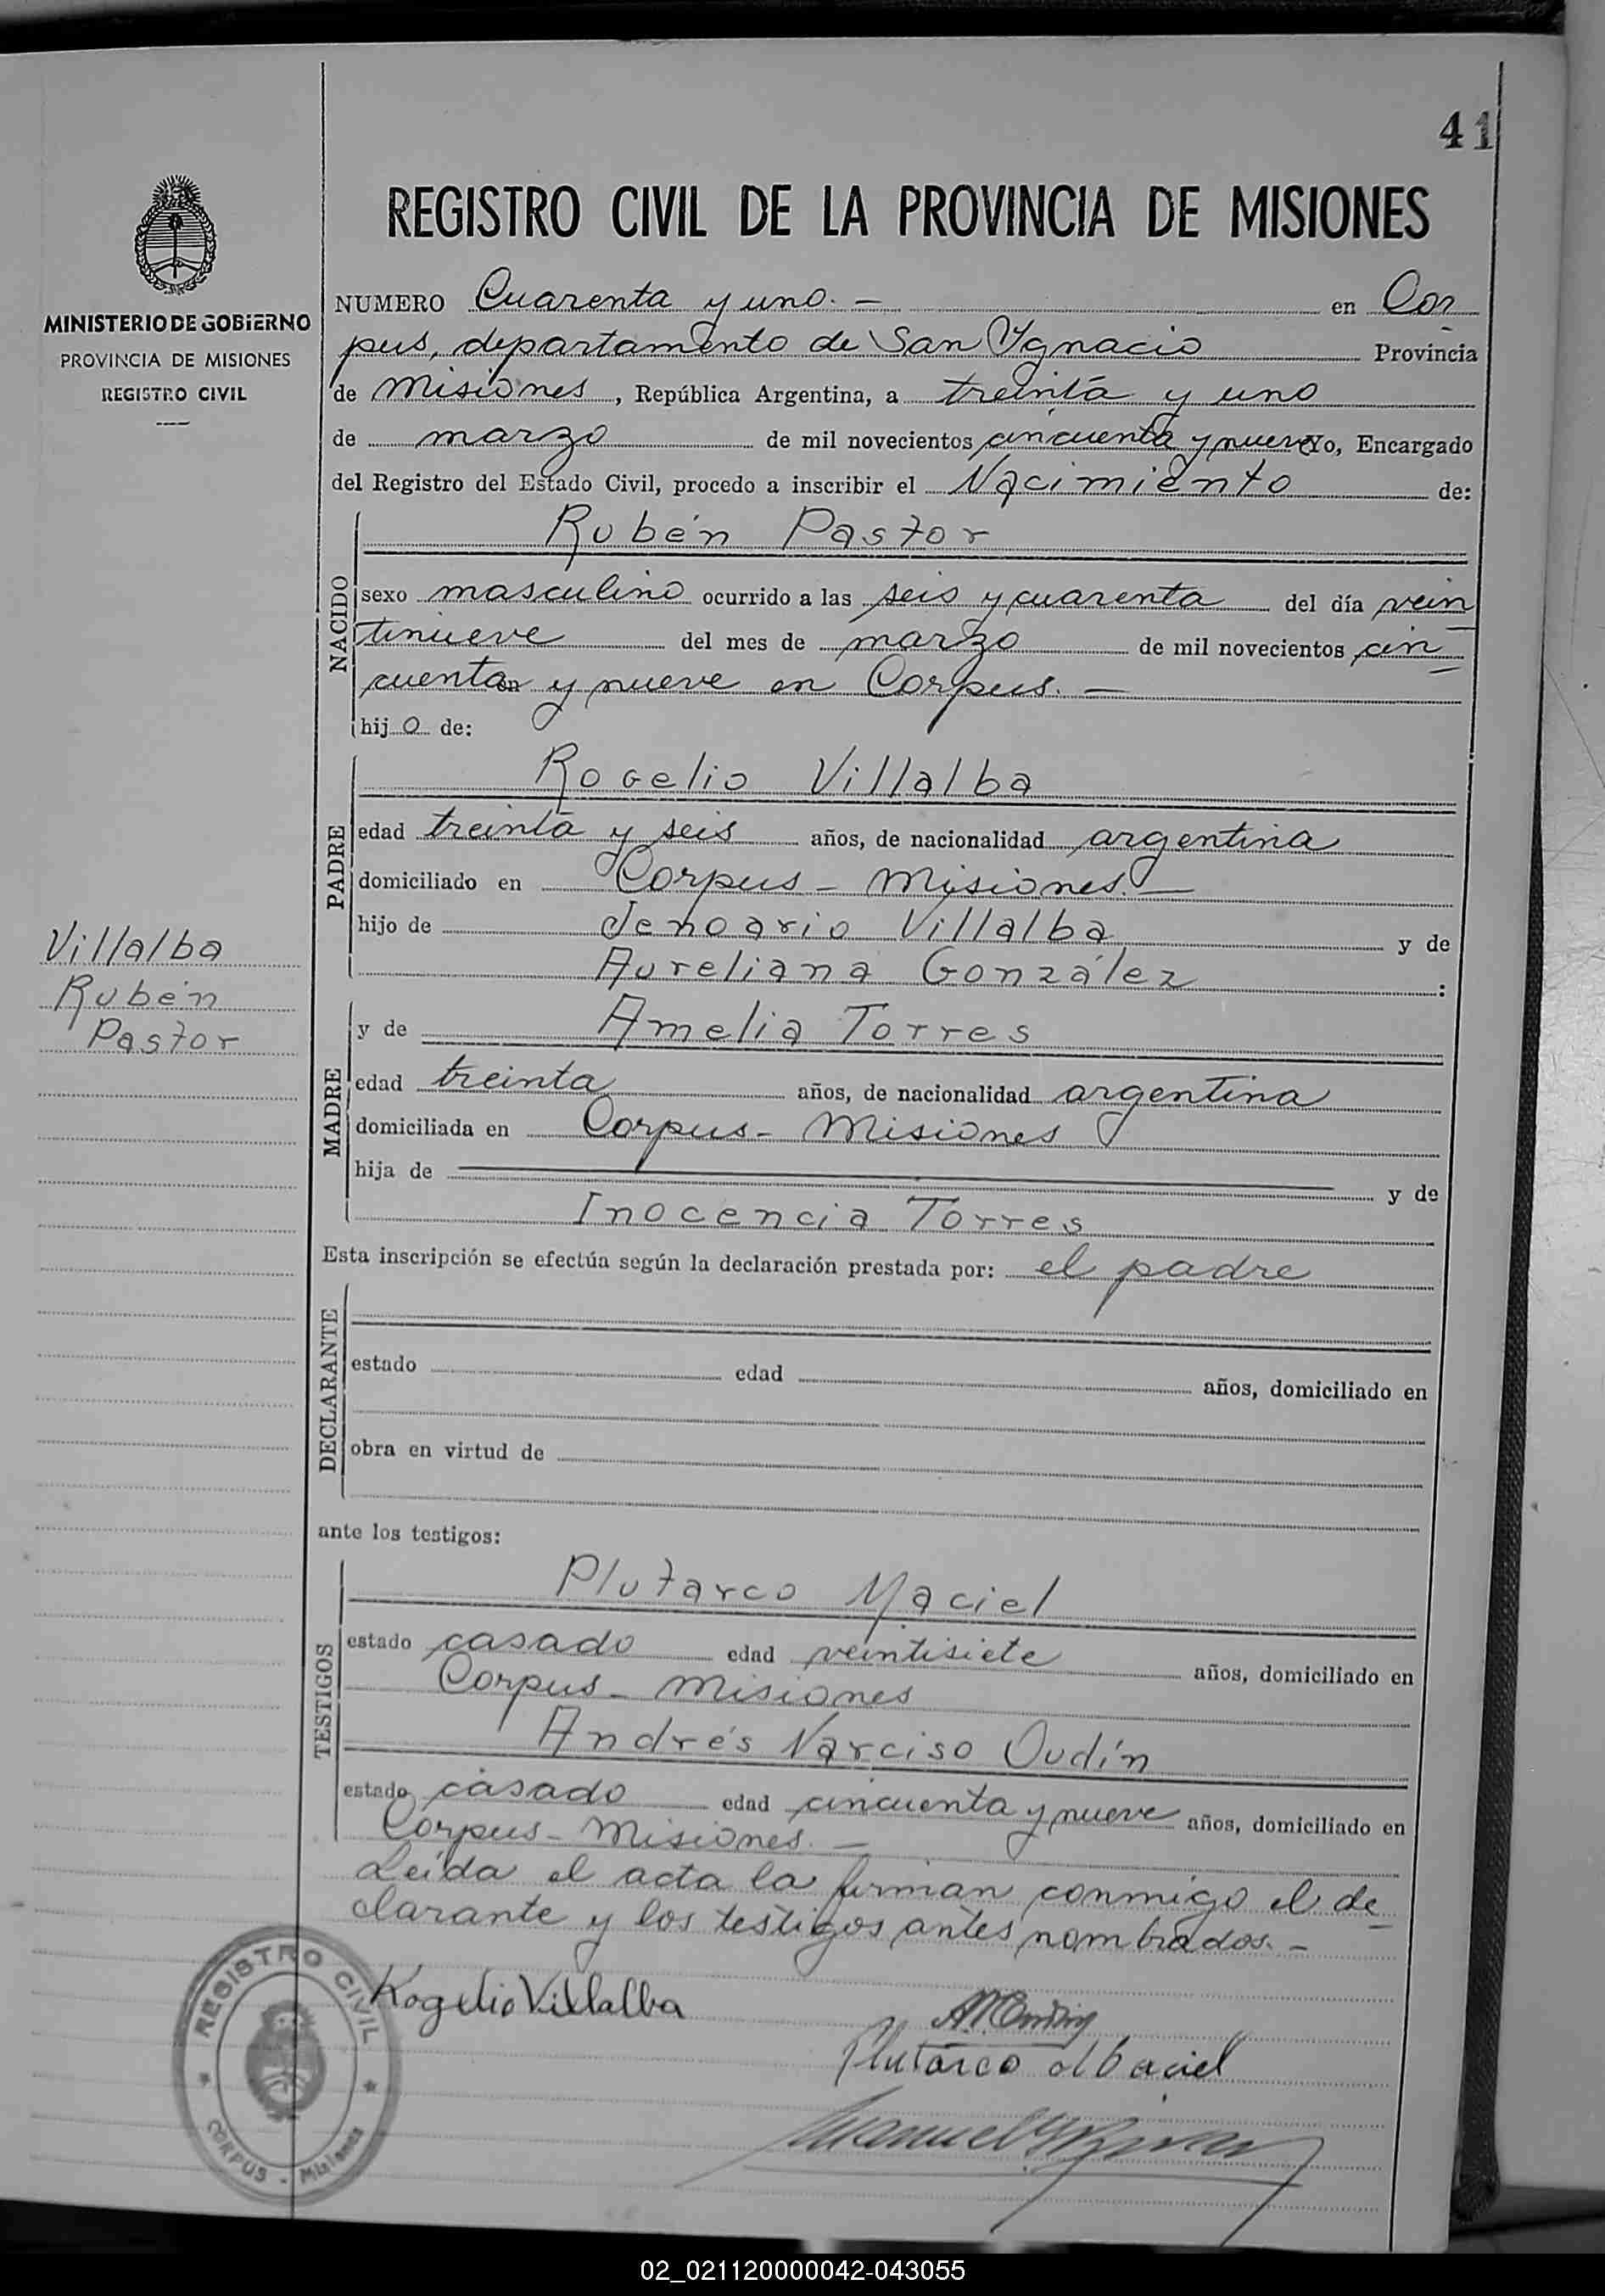 41
REGISTRO CIVIL DE LA PROVINCIA DE MISIONES
MINISTERIO DE GOBIERNO
PROVINCIA DE MISIONES
REGISTRO CIVIL
NUMERO Cuarenta y uno. - en Cor
pus, departamento de San Ygnacio Provincia
de Misiones, República Argentina, a treinta y uno
de marzo de mil novecientos cincuenta y nueve Yo, Encargado
del Registro del Estado Civil, procedo a inscribir el Nacimiento de:
Rubén Pastor
NACIDO
sexo masculino ocurrido a las seis y cuarenta del día vein
tinueve del mes de marzo de mil novecientos cin
cuenta y nueve en Corpus. -
hijo de:
Rogelio Villalba
PADRE
edad treinta y seis años, de nacionalidad argentina
domiciliado en Corpus - Misiones. -
hijo de Jenoario Villalba y de
Aureliana González :
Villalba
Rubén
Pastor
y de Amelia Torres
MADRE
edad treinta años, de nacionalidad argentina
domiciliada en Corpus - Misiones
hija de y de
Inocencia Torres
Esta inscripción se efectúa según la declaración prestada por: el padre
DECLARANTE
estado edad años, domiciliado en
obra en virtud de
ante los testigos:
Plutarco Maciel
TESTIGOS
estado casado edad veintisiete años, domiciliado en
Corpus - Misiones
Andrés Narciso Oudín
estado casado edad cincuenta y nueve años, domiciliado en
Corpus - Misiones. -
Leída el acta la firman conmigo el de
clarante y los testigos antes nombrados. -
Rogelio Villalba
Plutarco Maciel
REGISTRO CIVIL
CORPUS - Misiones
02_021120000042-043055